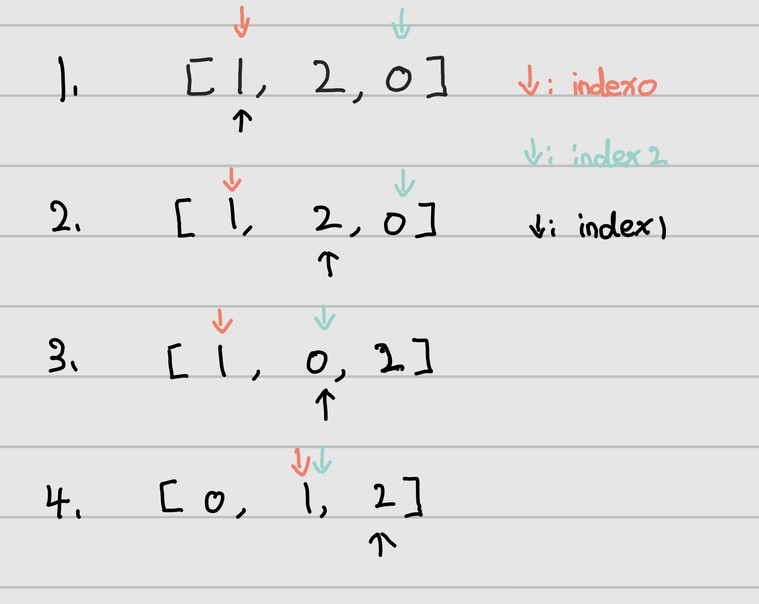 1. [1, 2, 0] ↓: index0
↓: index2
2. [1, 2, 0] ↓: index1
3. [1, 0, 2]
4. [0, 1, 2]